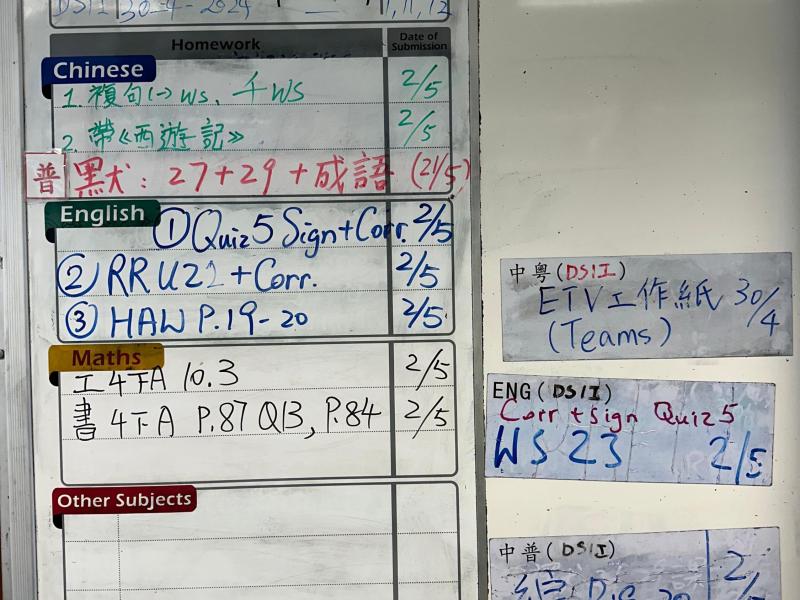 30-4-2024
Homework
Date of Submission
Chinese
1. 複句(一) WS、千WS 2/5
2. 帶《西遊記》 2/5
普 默: 27+29+成語 (21/5)
English
① Quiz 5 Sign+Corr. 2/5
② RR U22 + Corr. 2/5
③ HAW P.19-20 2/5
Maths
工4下A 10.3 2/5
書 4下A P.87 Q13, P.84 2/5
Other Subjects
中粵(DSII)
ETV工作紙 30/4
(Teams)
ENG(DSII)
Corr + sign Quiz 5
WS 23 2/5
中普(DSII)